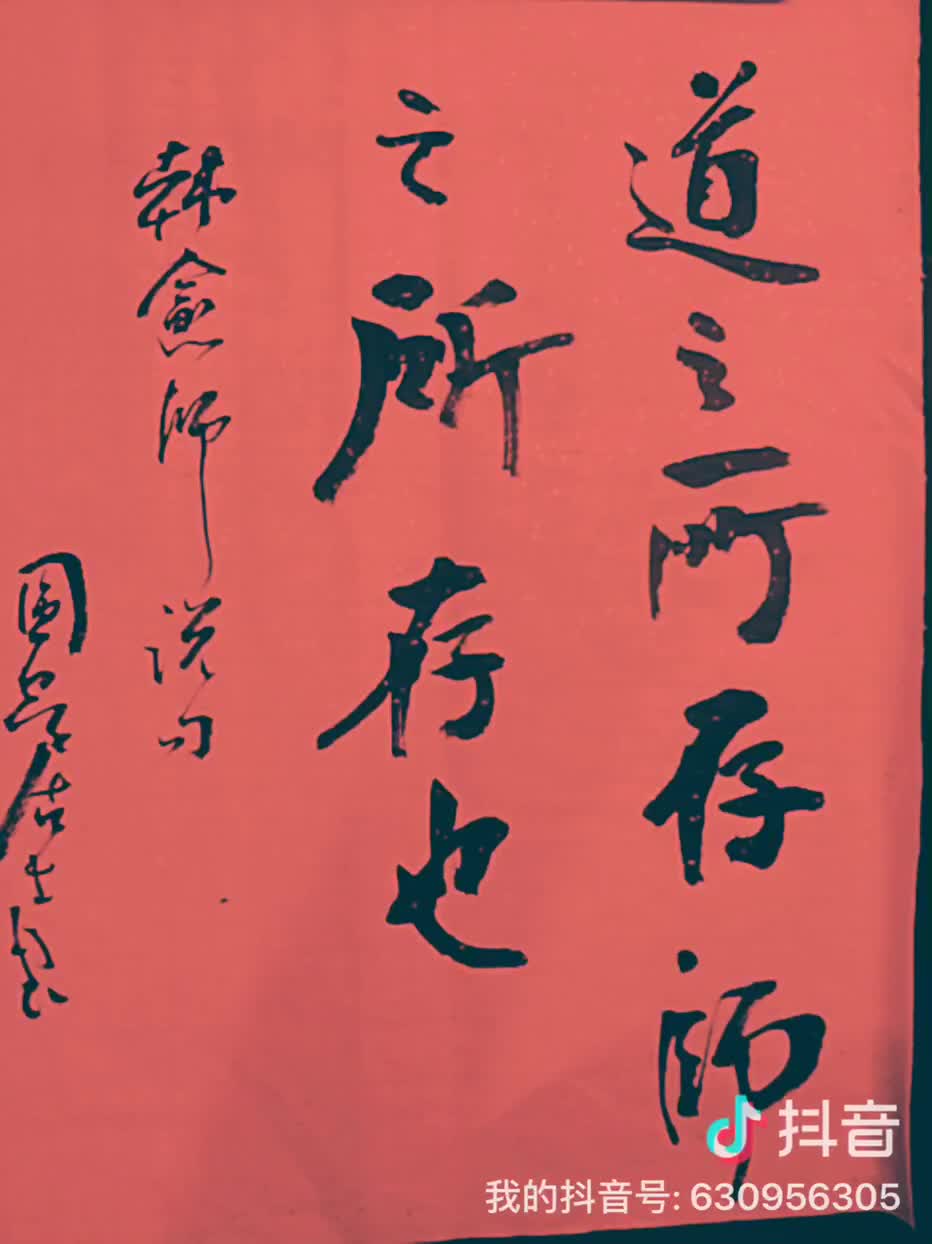 道之所存师
之所存也
韩愈师说句
国学居士书
抖音
我的抖音号: 630956305